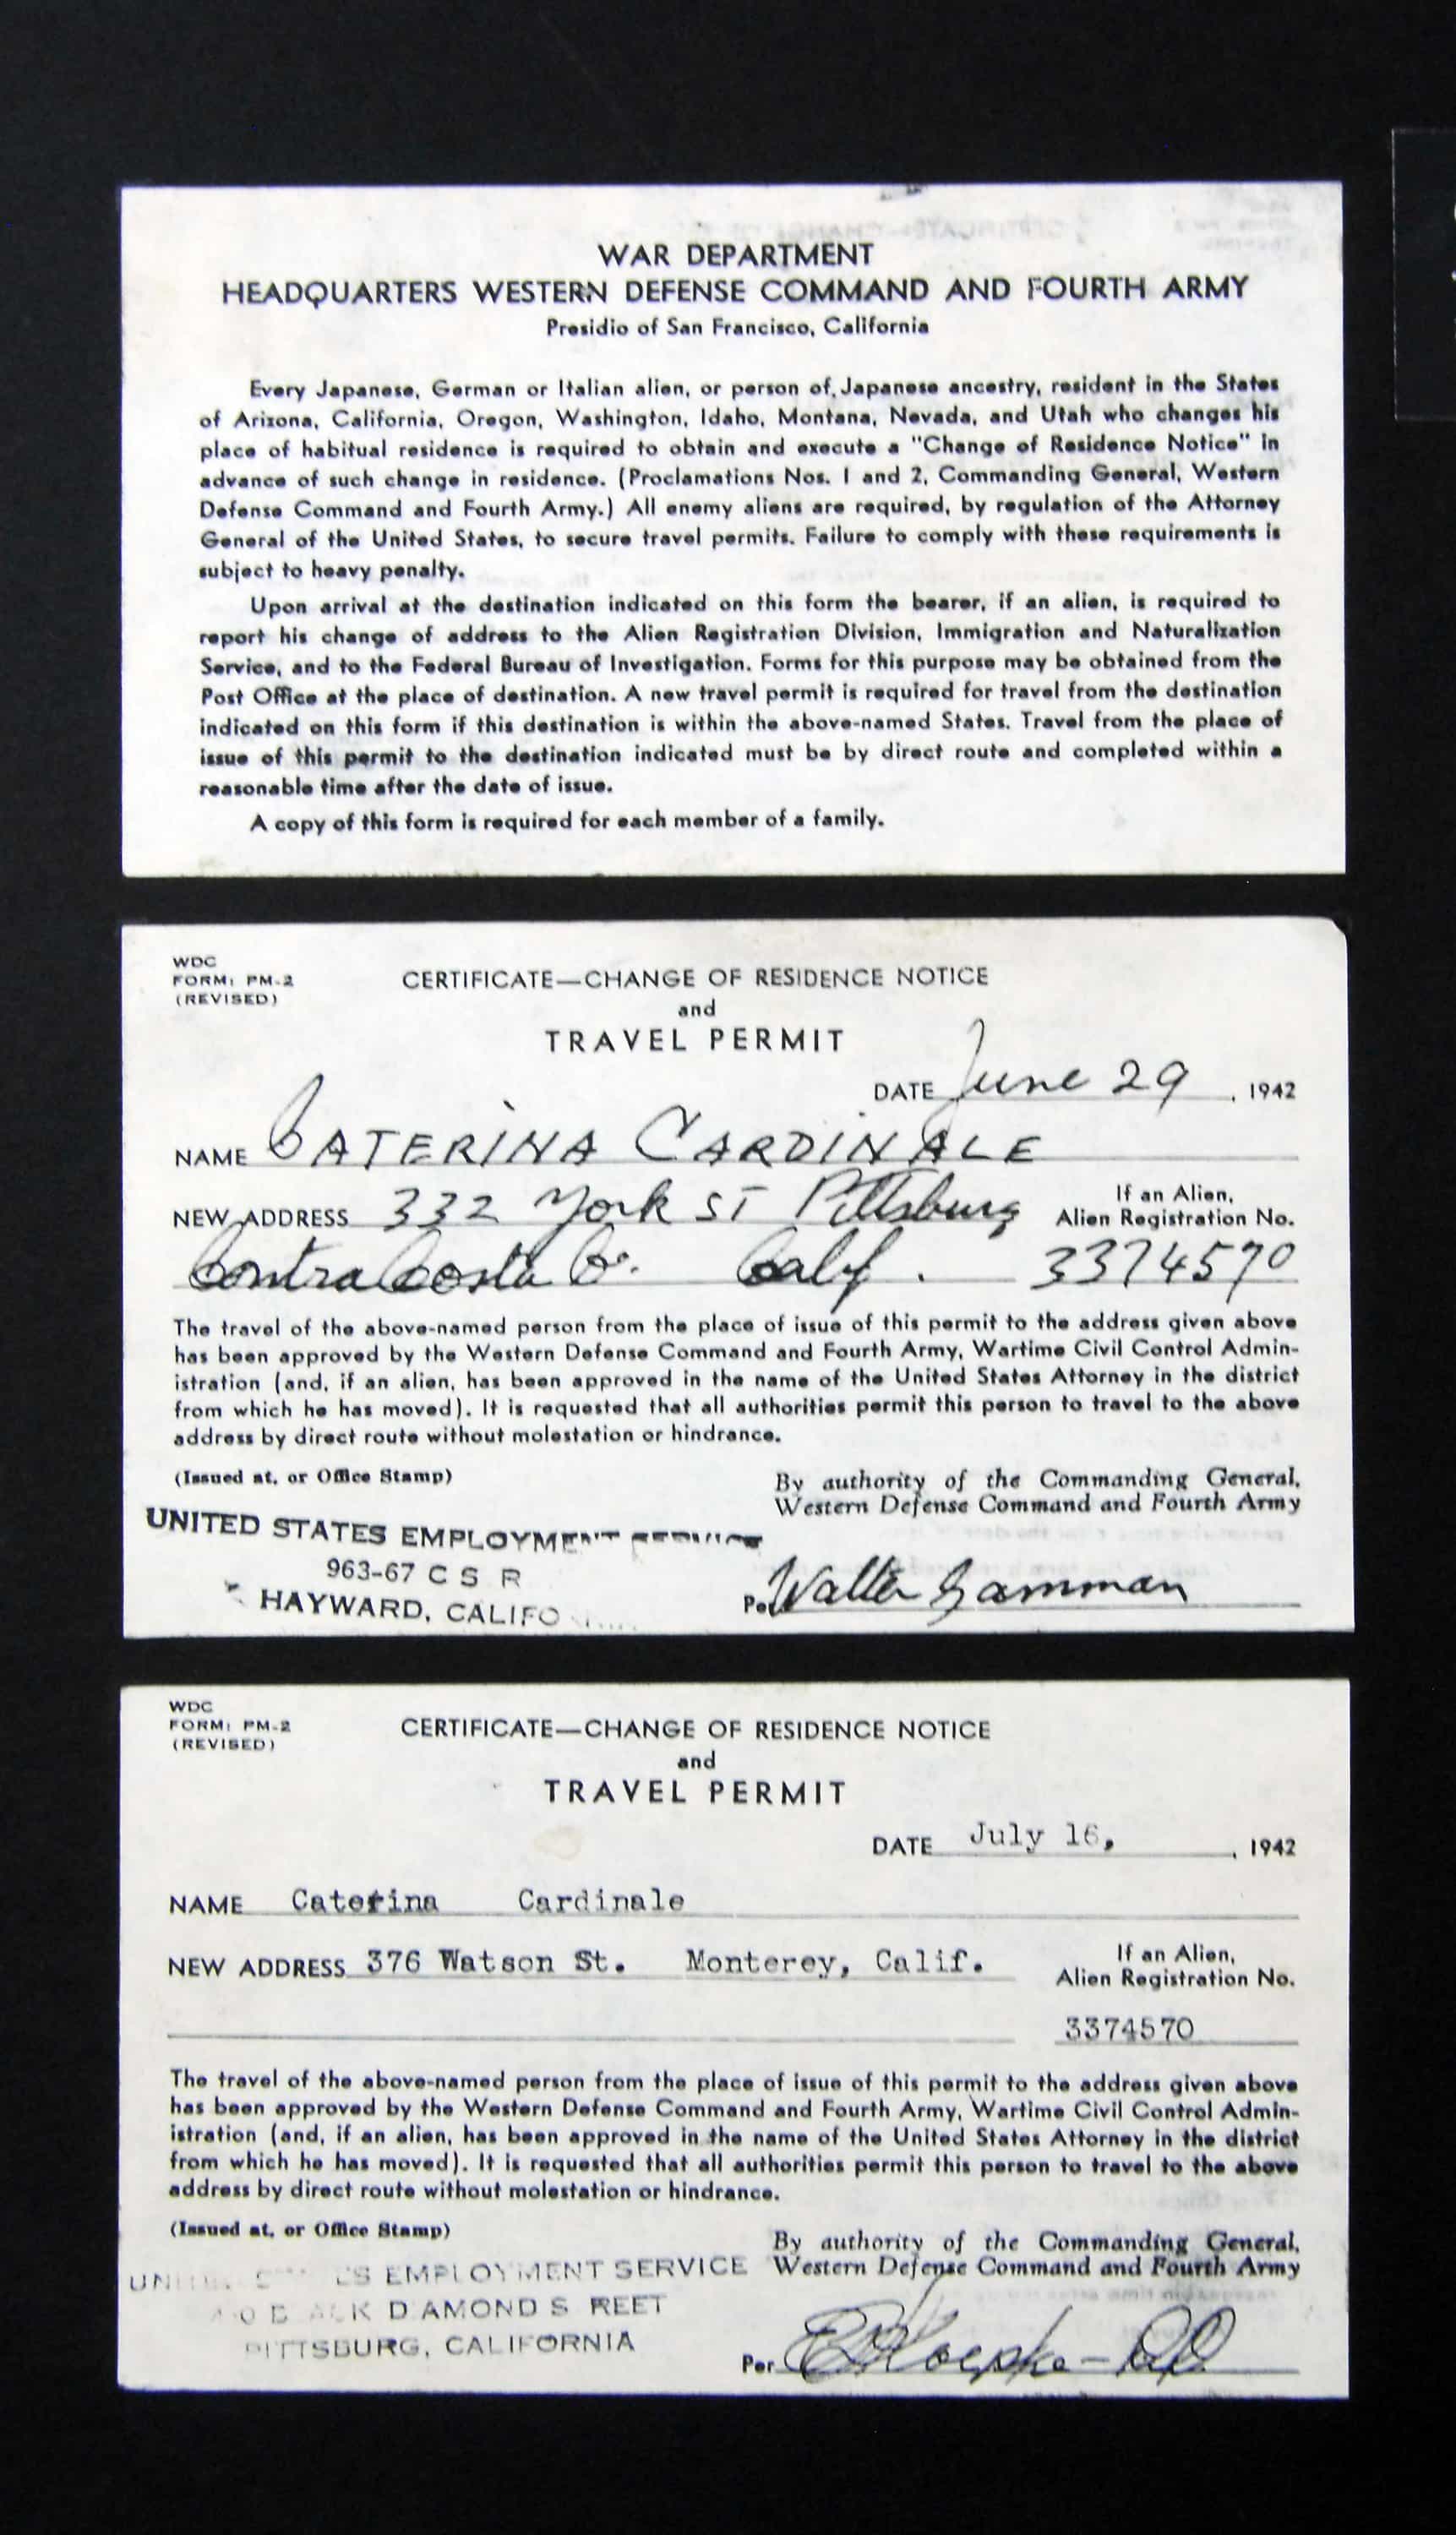 WAR DEPARTMENT
HEADQUARTERS WESTERN DEFENSE COMMAND AND FOURTH ARMY
Presidio of San Francisco, California
Every Japanese, German or Italian alien, or person of Japanese ancestry, resident in the States
of Arizona, California, Oregon, Washington, Idaho, Montana, Nevada, and Utah who changes his
place of habitual residence is required to obtain and execute a "Change of Residence Notice" in
advance of such change in residence. (Proclamations Nos. 1 and 2, Commanding General, Western
Defense Command and Fourth Army.) All enemy aliens are required, by regulation of the Attorney
General of the United States, to secure travel permits. Failure to comply with these requirements is
subject to heavy penalty.
Upon arrival at the destination indicated on this form the bearer, if an alien, is required to
report his change of address to the Alien Registration Division, Immigration and Naturalization
Service, and to the Federal Bureau of Investigation. Forms for this purpose may be obtained from the
Post Office at the place of destination. A new travel permit is required for travel from the destination
indicated on this form if this destination is within the above-named States. Travel from the place of
issue of this permit to the destination indicated must be by direct route and completed within a
reasonable time after the date of issue.
A copy of this form is required for each member of a family.
WDC
FORM: PM-2
(REVISED)
CERTIFICATE—CHANGE OF RESIDENCE NOTICE
and
TRAVEL PERMIT
DATE June 29, 1942
NAME CATERINA CARDINALE
NEW ADDRESS 332 York ST Pittsburg
If an Alien,
Alien Registration No.
Contra Costa Co. Calif. 3374570
The travel of the above-named person from the place of issue of this permit to the address given above
has been approved by the Western Defense Command and Fourth Army, Wartime Civil Control Admin-
istration (and, if an alien, has been approved in the name of the United States Attorney in the district
from which he has moved). It is requested that all authorities permit this person to travel to the above
address by direct route without molestation or hindrance.
(Issued at, or Office Stamp)
By authority of the Commanding General,
Western Defense Command and Fourth Army
UNITED STATES EMPLOYMENT SERVICE
963-67 C S R
HAYWARD, CALIFO
Per Walter Gamman
WDC
FORM: PM-2
(REVISED)
CERTIFICATE—CHANGE OF RESIDENCE NOTICE
and
TRAVEL PERMIT
DATE July 16, , 1942
NAME Caterina Cardinale
NEW ADDRESS 376 Watson St. Monterey, Calif.
If an Alien,
Alien Registration No.
3374570
The travel of the above-named person from the place of issue of this permit to the address given above
has been approved by the Western Defense Command and Fourth Army, Wartime Civil Control Admin-
istration (and, if an alien, has been approved in the name of the United States Attorney in the district
from which he has moved). It is requested that all authorities permit this person to travel to the above
address by direct route without molestation or hindrance.
(Issued at, or Office Stamp)
By authority of the Commanding General,
Western Defense Command and Fourth Army
EMPLOYMENT SERVICE
D AMOND S REET
PITTSBURG, CALIFORNIA
Per